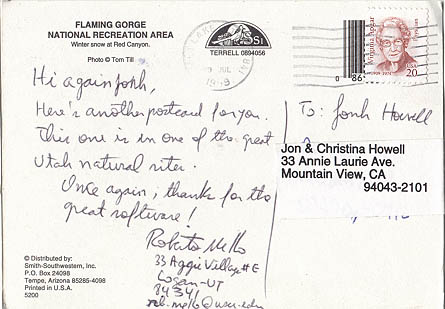 FLAMING GORGE
NATIONAL RECREATION AREA
Winter snow at Red Canyon.
Photo © Tom Till
TERRELL 0894056
1998
Virginia Apgar
USA
20
0 86
Hi again Josh,
Here's another postcard for you.
This one is in one of the great
Utah natural sites.
Once again, thanks for the
great software!
Roberto Mello
33 Aggie Village # E
Logan - UT
84341
To: Josh Howell
Jon & Christina Howell
33 Annie Laurie Ave.
Mountain View, CA
94043-2101
© Distributed by:
Smith-Southwestern, Inc.
P.O. Box 24098
Tempe, Arizona 85285-4098
Printed in U.S.A.
5200